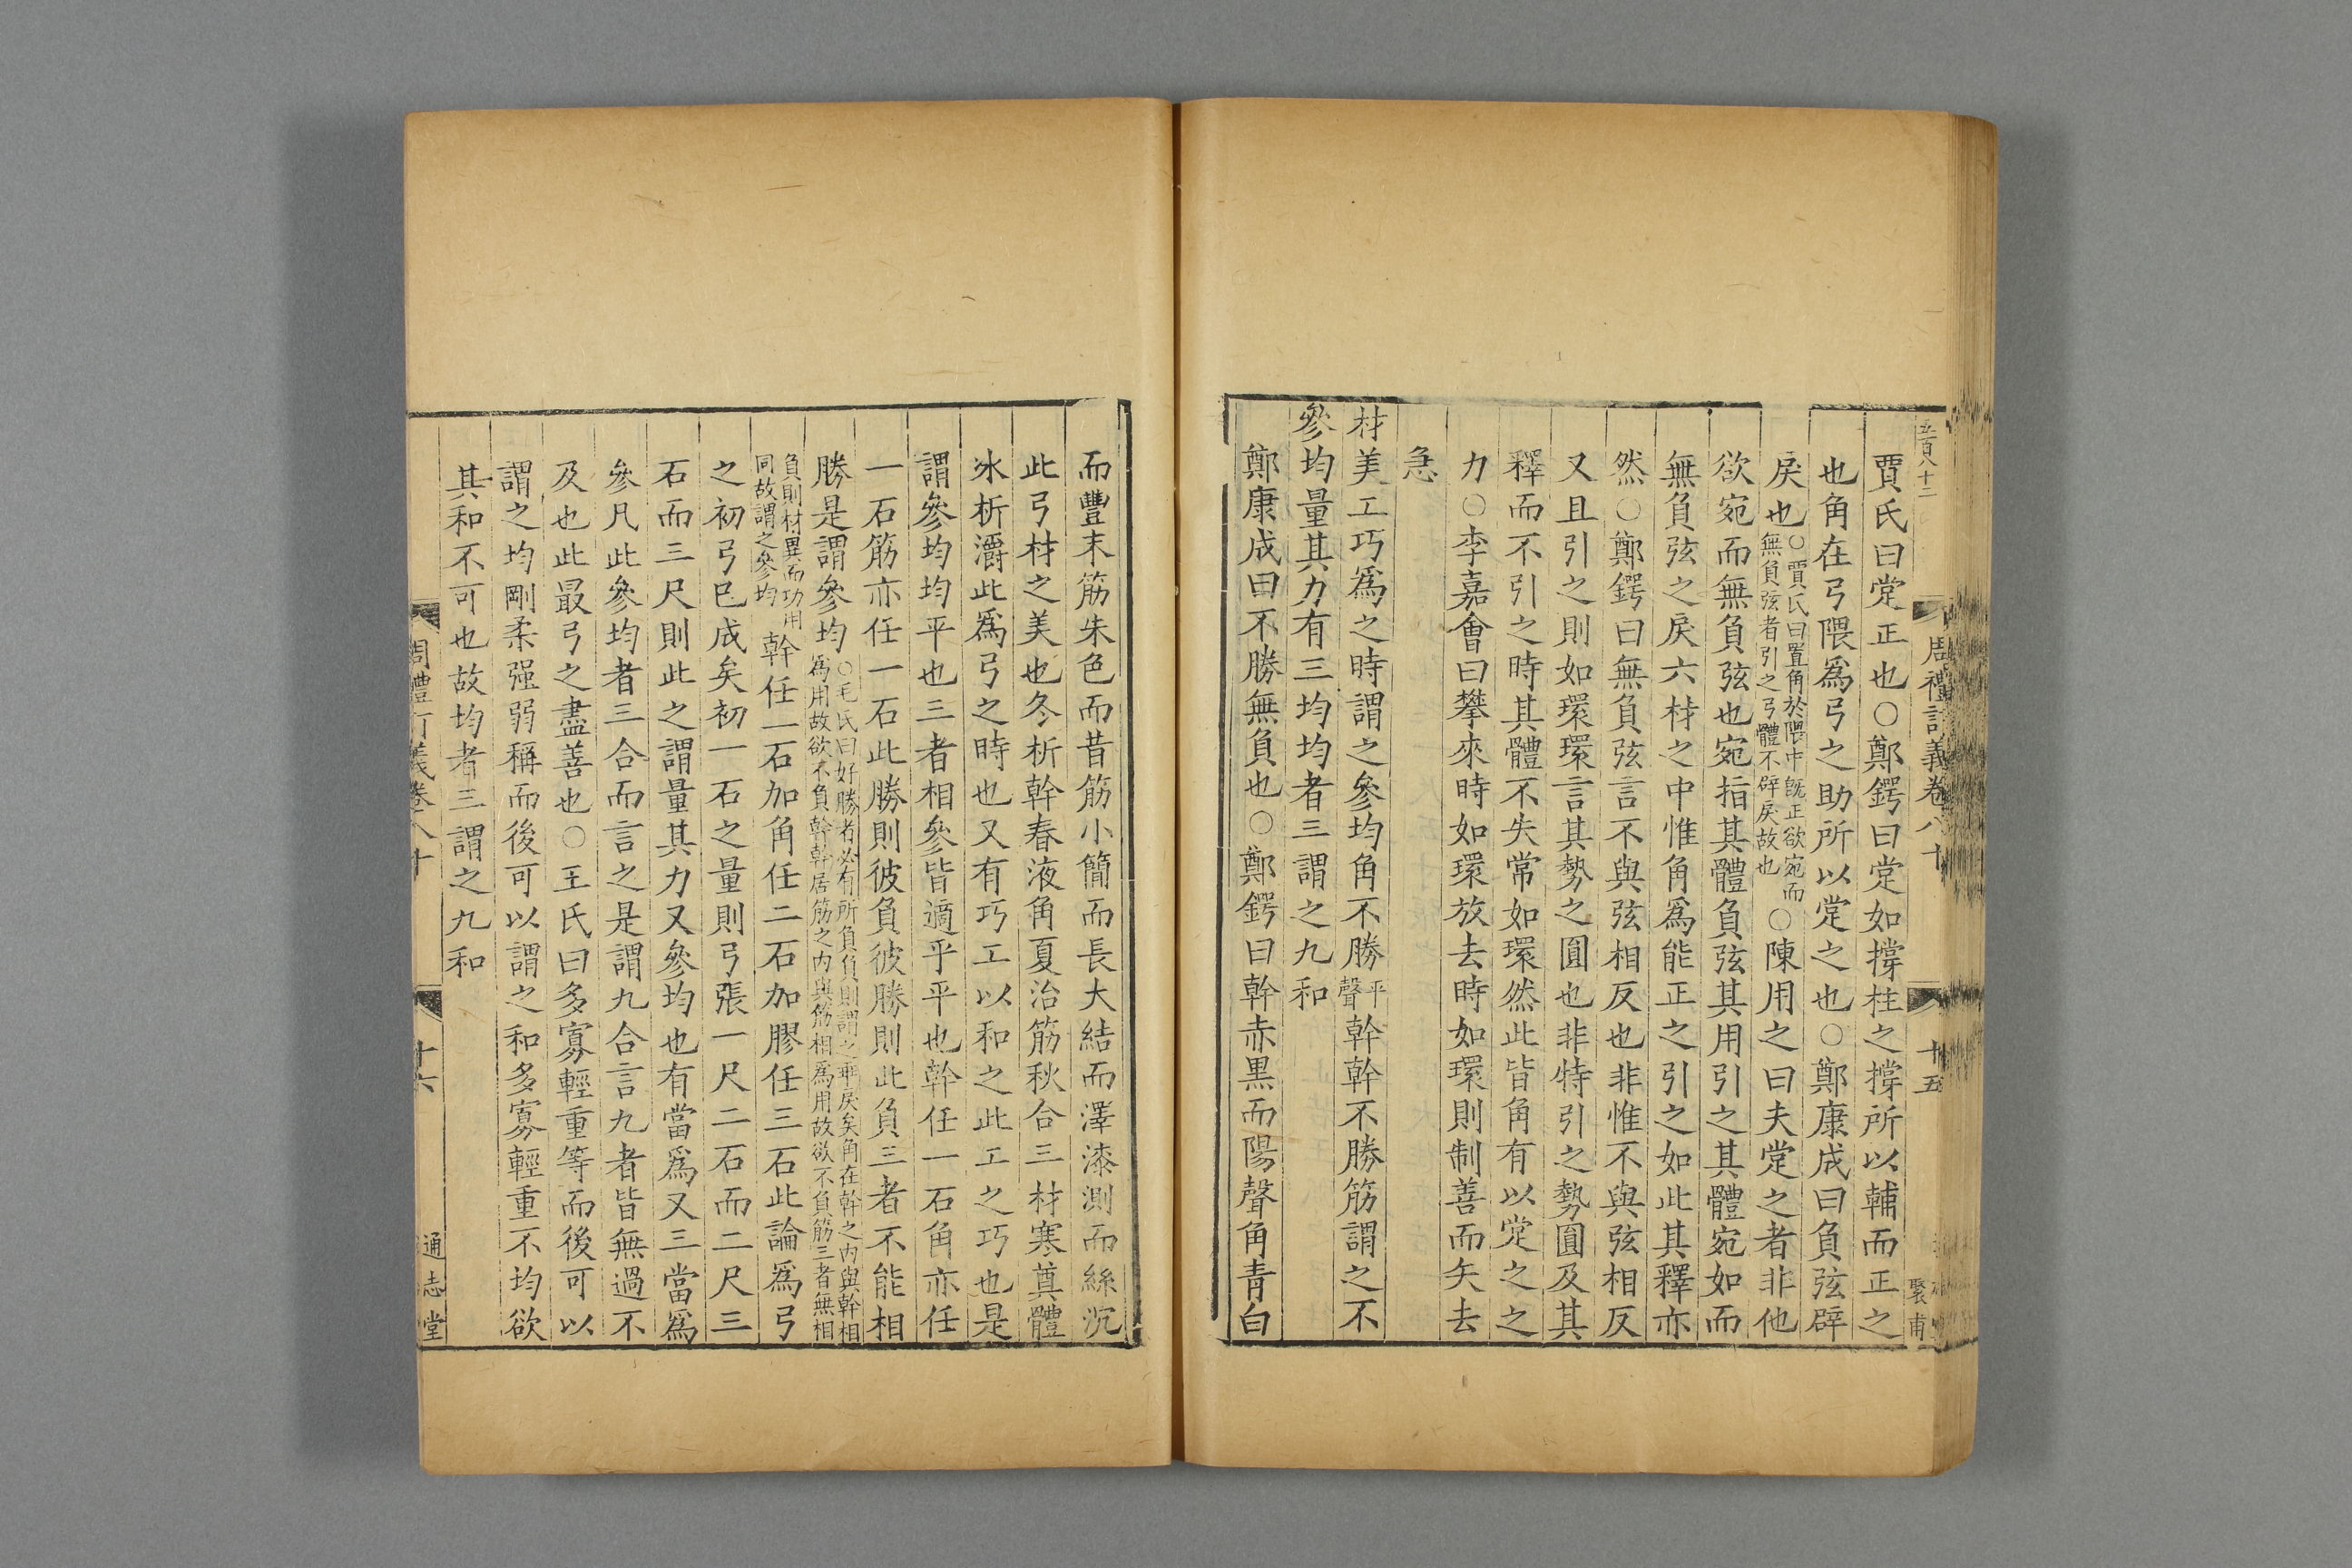 五百八十二
周禮訂義卷八十
十五
賈氏曰定正也○鄭鍔曰定如撐柱之撐所以輔而正之
也角在弓隈爲弓之助所以定之也○鄭康成曰負弦辟
戾也○賈氏曰置角於隈中旣正欲宛而無負弦者引之弓體不辟戾故也○陳用之曰夫定之者非他
欲宛而無負弦也宛指其體負弦其用引之其體宛如而
無負弦之戾六材之中惟角爲能正之引之如此其釋亦
然○鄭鍔曰無負弦言不與弦相反也非惟不與弦相反
又且引之則如環環言其勢之圓也非特引之勢圓及其
釋而不引之時其體不失常如環然此皆角有以定之之
力○李嘉會曰攀來時如環放去時如環則制善而矢去
急
材美工巧爲之時謂之參均角不勝平聲幹幹不勝筋謂之不
參均量其力有三均均者三謂之九和
鄭康成曰不勝無負也○鄭鍔曰幹赤黑而陽聲角青白
而豐末筋朱色而昔筋小簡而長大結而澤漆測而絲沉
此弓材之美也冬析幹春液角夏治筋秋合三材寒奠體
冰析灂此爲弓之時也又有巧工以和之此工之巧也是
謂參均均平也三者相參皆適乎平也幹任一石角亦任
一石筋亦任一石此勝則彼負彼勝則此負三者不能相
勝是謂參均○毛氏曰好勝者必有所負負則謂之乖戾矣角在幹之內與幹相爲用故欲不負幹幹居筋之內與筋相爲用故欲不負筋三者無相
負則材異而功用同故謂之參均幹任一石加角任二石加膠任三石此論爲弓
之初弓已成矣初一石之量則弓張一尺二石而二尺三
石而三尺則此之謂量其力又參均也有當爲又三當爲
參凡此參均者三合而言之是謂九合言九者皆無過不
及也此最弓之盡善也○王氏曰多寡輕重等而後可以
謂之均剛柔强弱稱而後可以謂之和多寡輕重不均欲
其和不可也故均者三謂之九和
周禮訂義卷八十
十六
通志堂